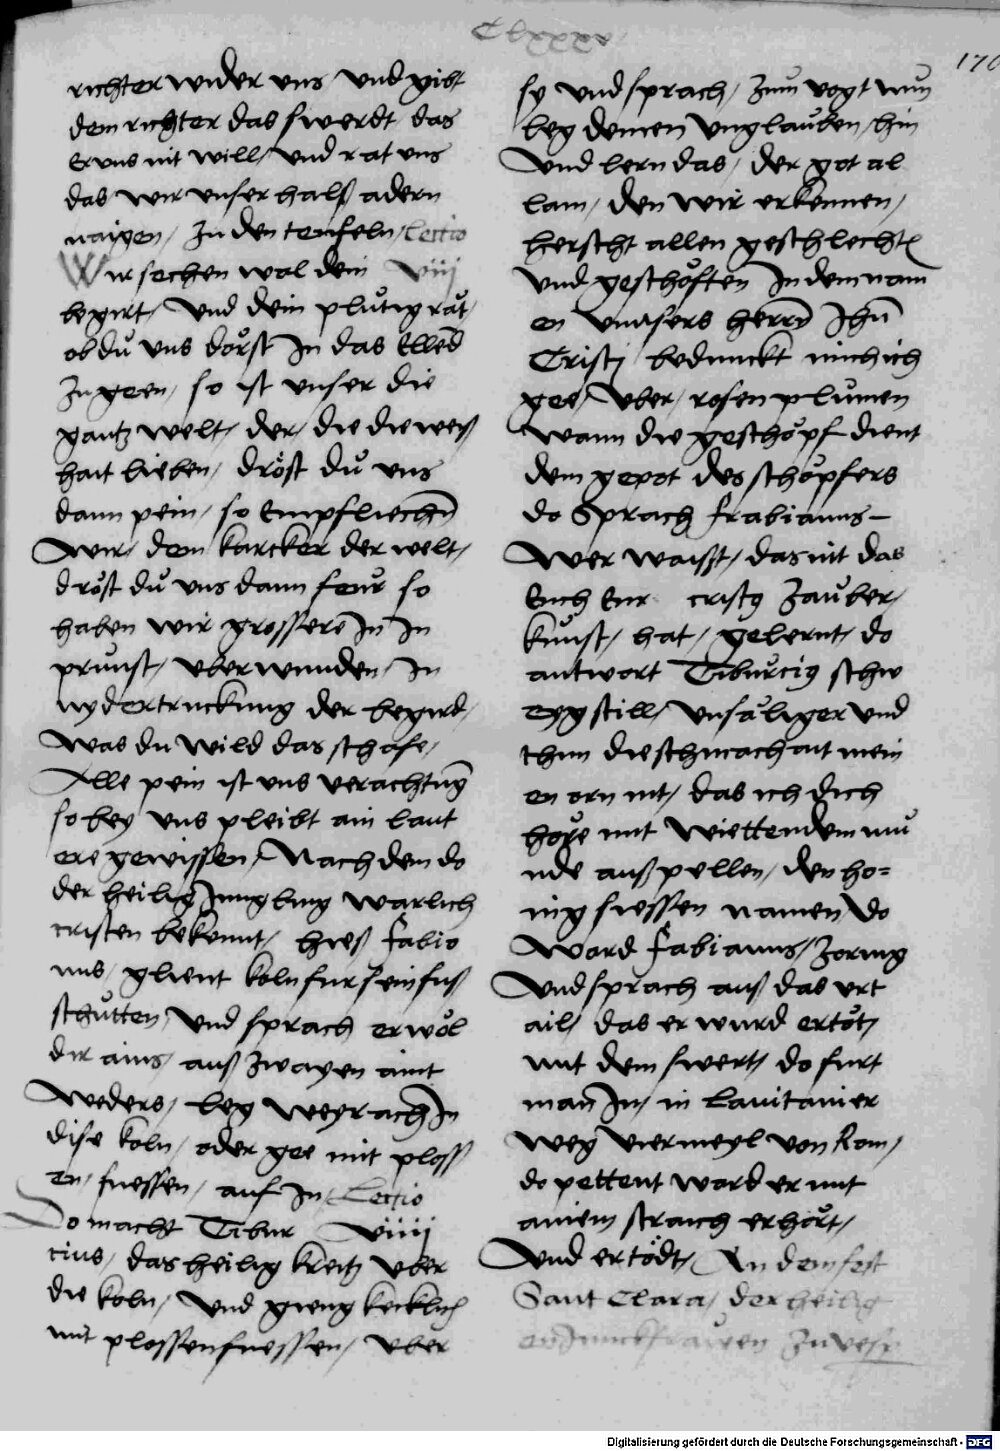 Clxxxv
170
richter wider uns / und gibt
dem richter das swerdt das
er uns nit will / und rat uns
das wir unser halß adern
naigen / zu den teufeln / Lectio
Wir sechen wal dein viij
begirt / und dein plůtig rat /
ob dů uns dorst in das Ellend
zu geen / so ist unser die
gantz welt / der / die die weiß
hait lieben / dröst dů uns
dann pein / so Empfliechen
wir / dem karcker der welt /
dröst dů uns dann feur so
haben wir grossere in In
prunst / uberwunden / In
nydertruckung der begird /
was du wild das schafe /
Alle pein ist uns verachtung
so bey uns pleibt ain laut
ere gewissen / Nach dem do
der heilig Jungling warlich
cristen bekennt / hieß fabia
nus / glient koln fur sein fuß
schutten / und sprach erwöl
dir ains / auß zwayen aint
weders / leg weyrach In
dise koln / oder gee mit ploss
en / fuessen / auf In / Lectio
Do macht Tibur viiij
cius / das heilig kreitz uber
die koln / und gieng kecklich
mit plossen fuessen / uber
sy und sprach / zum vogt nun
leg deinen unglauben / hin
und lern das / der got al
lain / den wir erkennen /
herscht allen geschlechten
und geschöften In dem nam
en unsers herren Jhesu
Cristi bedunckt mich ich
gee / uber / rosen plumen
wann die geschöpf dient
dem gepot des schöpfers
do Sprach frabianus –
wer waißt / das nit das
Euch Eur cristus zauber /
kunst / hat / gelernt / do
antwort Tiburcius schw
eyg still / unsäliger und
thun die schmachait mein
en orn nit / das ich dich
höre mit wiettendem mu
nde auß pellen / den ho=
nig suessen namen / do
ward fabianus / zornig
und sprach auß das urt
ail / das er wurd ertöt /
mit dem swert / do furt
man In / in Lavitanier
weg vier meyl von Rom /
do pettent ward er mit
ainem straich erhört /
und ertödt / An dem fest
Sant Clara / der heilig
en Junckfrawen zu vesp
Digitalisierung gefördert durch die Deutsche Forschungsgemeinschaft - DFG